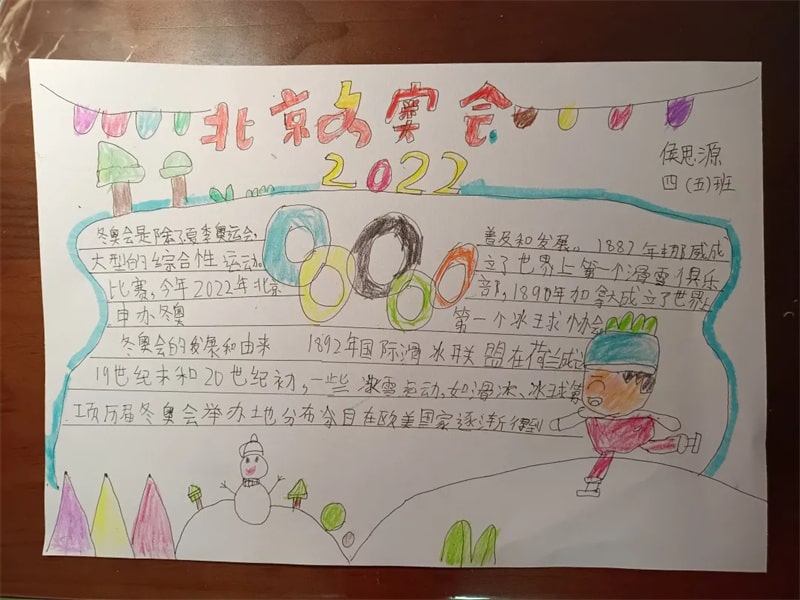 北京冬奥会
2022
侯思源
四(五)班
冬奥会是除了夏季奥运会,
大型的综合性运动。
比赛,今年2022年北京
申办冬奥
普及和发展。1887年挪威成
立了世界上第一个滑雪俱乐
部,1890年加拿大成立了世界上
第一个冰球协会
冬奥会的发展和由来 1892年国际滑冰联盟在荷兰成
19世纪末和20世纪初,一些冰雪运动,如滑冰、冰球等
项历届冬奥会举办地分布 自在欧美国家逐渐得到